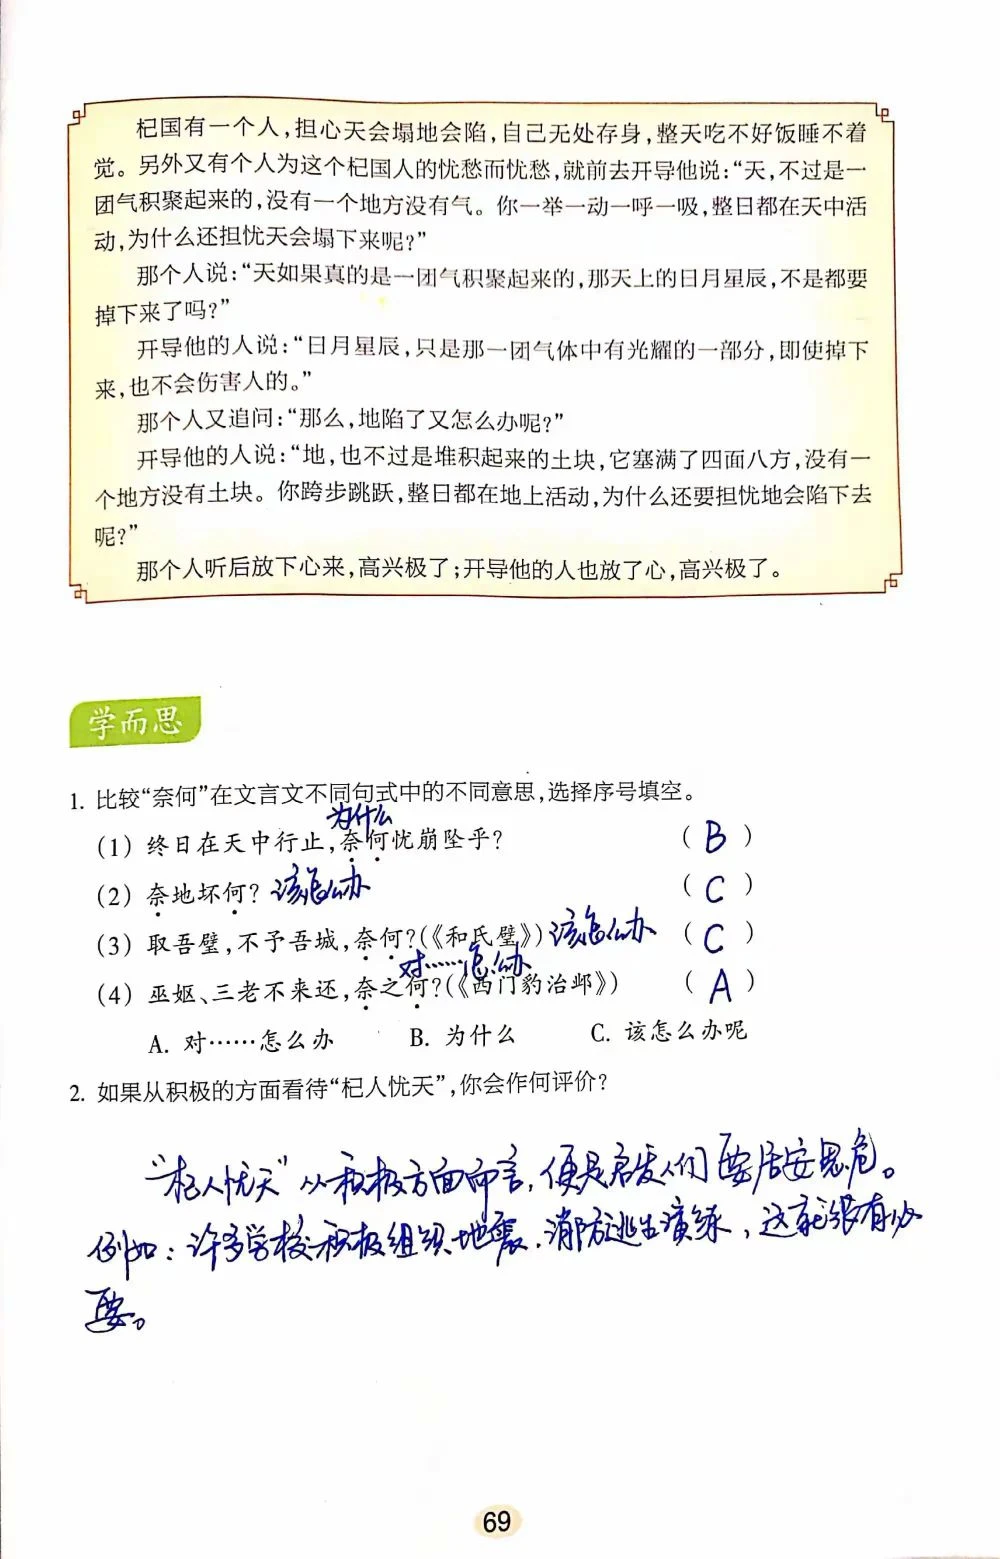 杞国有一个人，担心天会塌地会陷，自己无处存身，整天吃不好饭睡不着
觉。另外又有个人为这个杞国人的忧愁而忧愁，就前去开导他说：“天，不过是一
团气积聚起来的，没有一个地方没有气。你一举一动一呼一吸，整日都在天中活
动，为什么还担忧天会塌下来呢？”
那个人说：“天如果真的是一团气积聚起来的，那天上的日月星辰，不是都要
掉下来了吗？”
开导他的人说：“日月星辰，只是那一团气体中有光耀的一部分，即使掉下
来，也不会伤害人的。”
那个人又追问：“那么，地陷了又怎么办呢？”
开导他的人说：“地，也不过是堆积起来的土块，它塞满了四面八方，没有一
个地方没有土块。你跨步跳跃，整日都在地上活动，为什么还要担忧地会陷下去
呢？”
那个人听后放下心来，高兴极了；开导他的人也放了心，高兴极了。
学而思
1. 比较“奈何”在文言文不同句式中的不同意思，选择序号填空。
为什么
（1）终日在天中行止，奈何忧崩坠乎？（ B ）
（2）奈地坏何？ 该怎么办 （ C ）
（3）取吾璧，不予吾城，奈何？（《和氏璧》） 该怎么办 （ C ）
对……怎么办
（4）巫妪、三老不来还，奈之何？（《西门豹治邺》）（ A ）
A. 对……怎么办 B. 为什么 C. 该怎么办呢
2. 如果从积极的方面看待“杞人忧天”，你会作何评价？
“杞人忧天”从积极方面而言，便是启发人们要居安思危。
例如：许多学校积极组织地震、消防逃生演练，这就很有必
要。
69